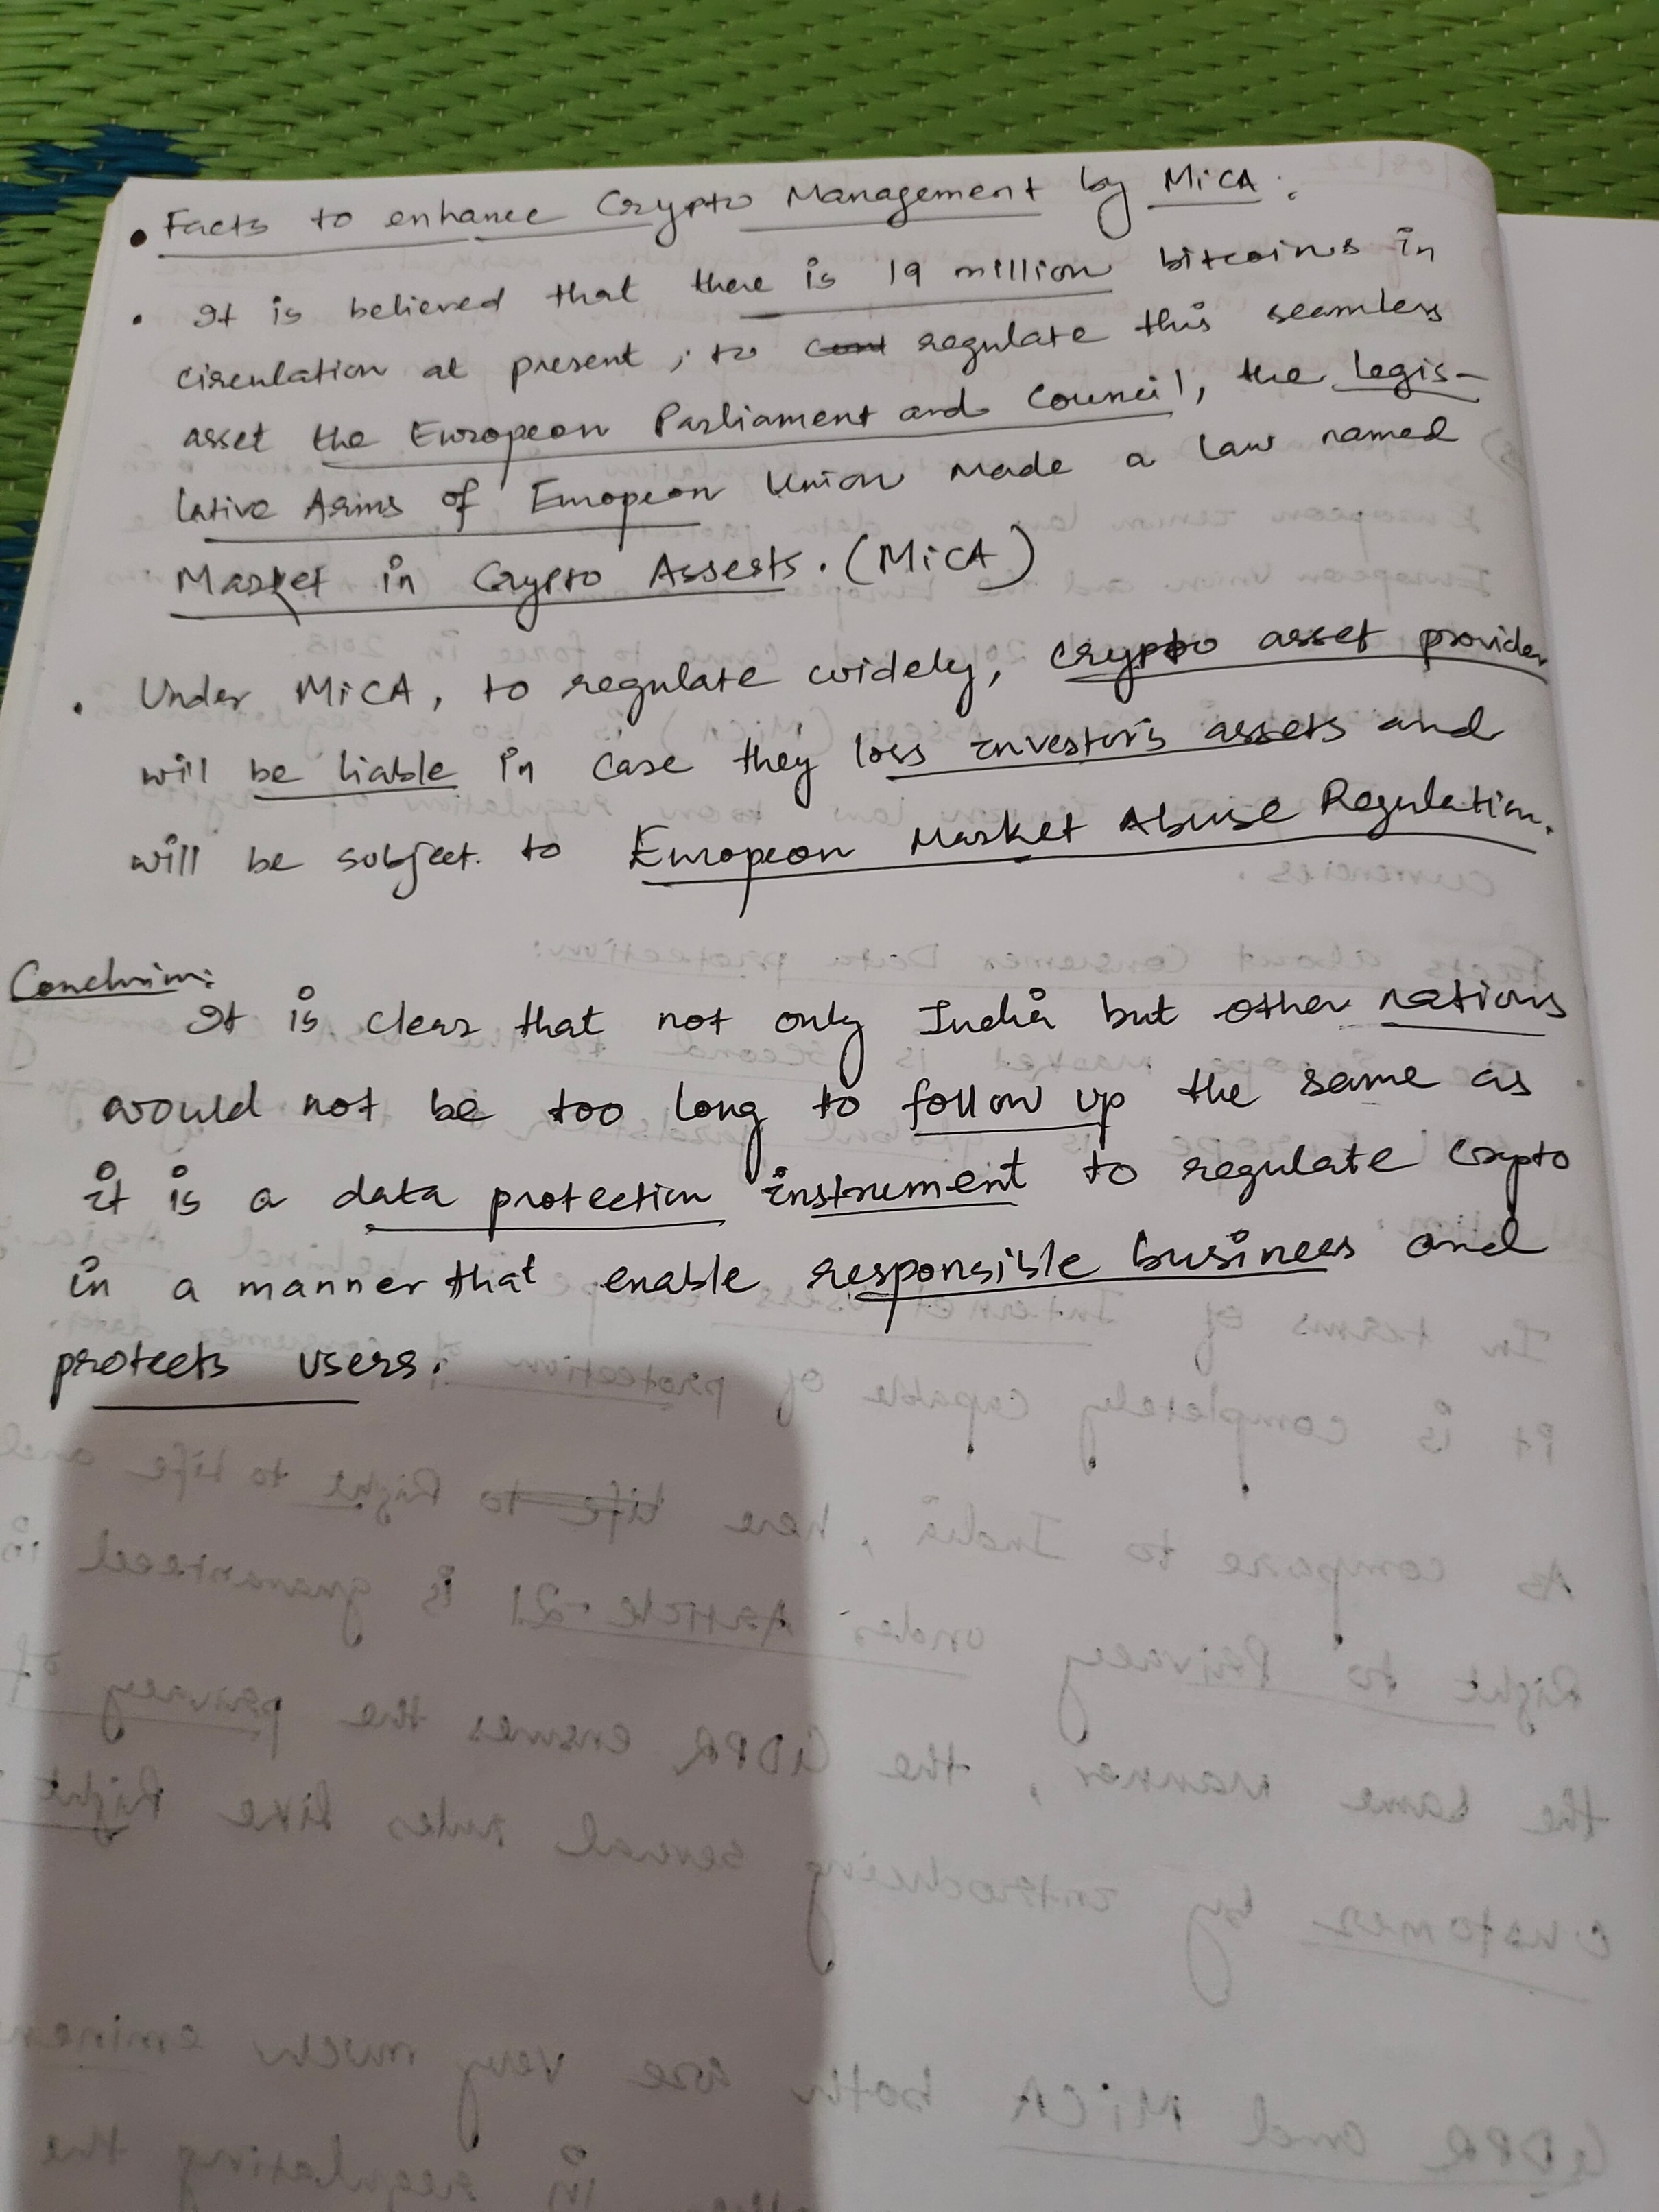 • Facts to enhance Crypto Management by MiCA :
• It is believed that there is 19 million bitcoins in
circulation at present, to cont regulate this seamless
asset the European Parliament and Council, the legis-
lative Arms of European Union made a law named
Market in Crypto Assests. (MiCA)
• Under MiCA, to regulate widely, crypto asset provider
will be liable in case they loss investor's assets and
will be subject to European Market Abuse Regulation.
Conclusion:
It is clear that not only India but other nations
would not be too long to follow up the same as
it is a data protection instrument to regulate crypto
in a manner that enable responsible business and
protects users.